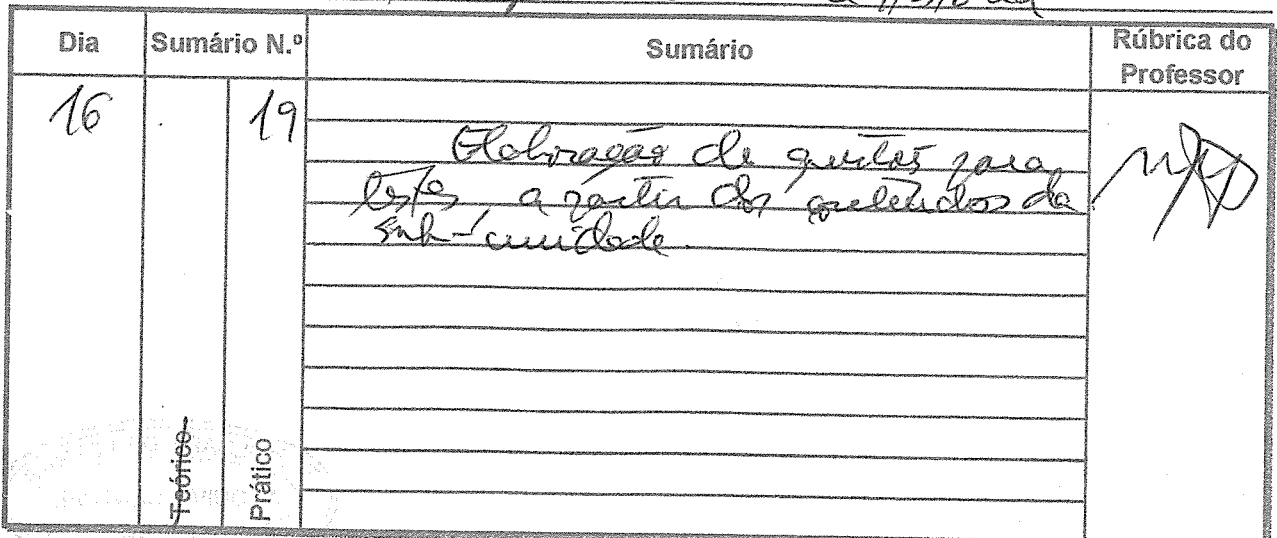 Dia Sumário N.º Sumário Rúbrica do Professor
16 19
Elaboração de questões para
testes, a partir dos conteúdos da
sub-unidade.
Teórico
Prático